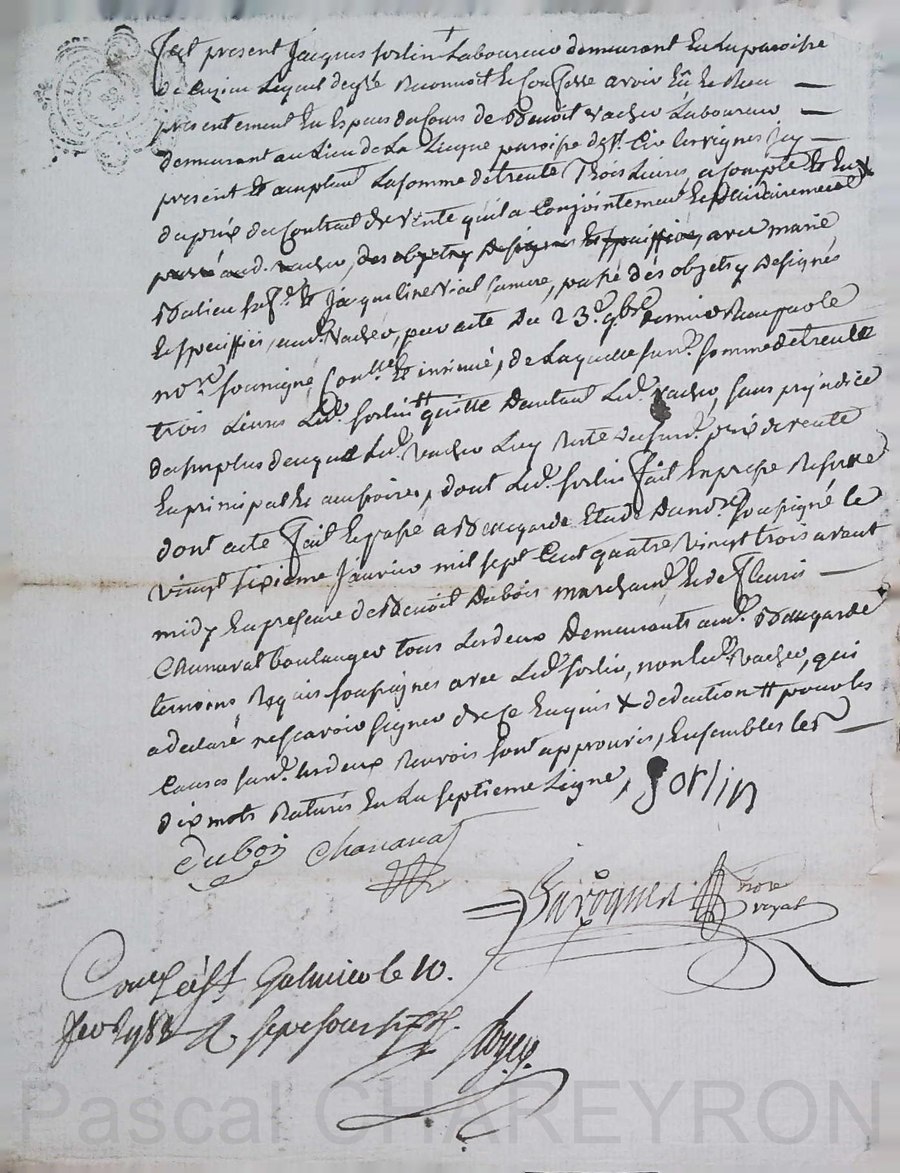 Fait present Jacques forlin Laboureur demeurant En La paroisse
de Lequel de gré Reconnoit Et Confesse avoir Eû Et Receu
présentement En Especes du Cours de Benoit vacher Laboureur
demeurant au Lieu de La paroisse de St. Cir Les vignes Icy
present Et acceptant La somme de trente Trois Livres, a Compte Et En X
du prix du Contrat de vente qu'il a Conjointement Et Solidairement
passé aud. vacher, des objets y Designés Et Speciffiés avec marie
Et Jacqueline vial passé des objets y Designés
Et Speciffiés, aud. vacher, par acte Du 23e. 9bre. dernier Reçu par le
nore. soussigné, Conllé Et insinué, de Laquelle susd. somme de trente
trois Livres Led. forlin # quitte D'autant Led. vacher, sans prejudice
du surplus duquel Led. vacher Luy Reste du susd. prix de vente
En principal Et accessoires, dont Led. forlin fait Expresse Reserve
dont acte fait Et passé a Bellegarde Etude Dud. nore. soussigné le
vingt sixieme Janvier mil sept Cent quatre vingt trois avant
midy En presence de Benoit Dubois marchand, Et de Fleuris
Chanavat boulanger tous Les deux Demeurants aud. Bellegarde
temoins Requis soussignés avec Led. forlin, non Led. vacher, qui
a declaré ne scavoir signer de ce Enquis X deduction # pour les
Causes susd. Les deux Renvois sont approuvés, Ensembles les
dix mots Raturés En La septieme Ligne,
forlin
Dubois Chanavat
nore
royal
Conllé à St. Galmier le 10.